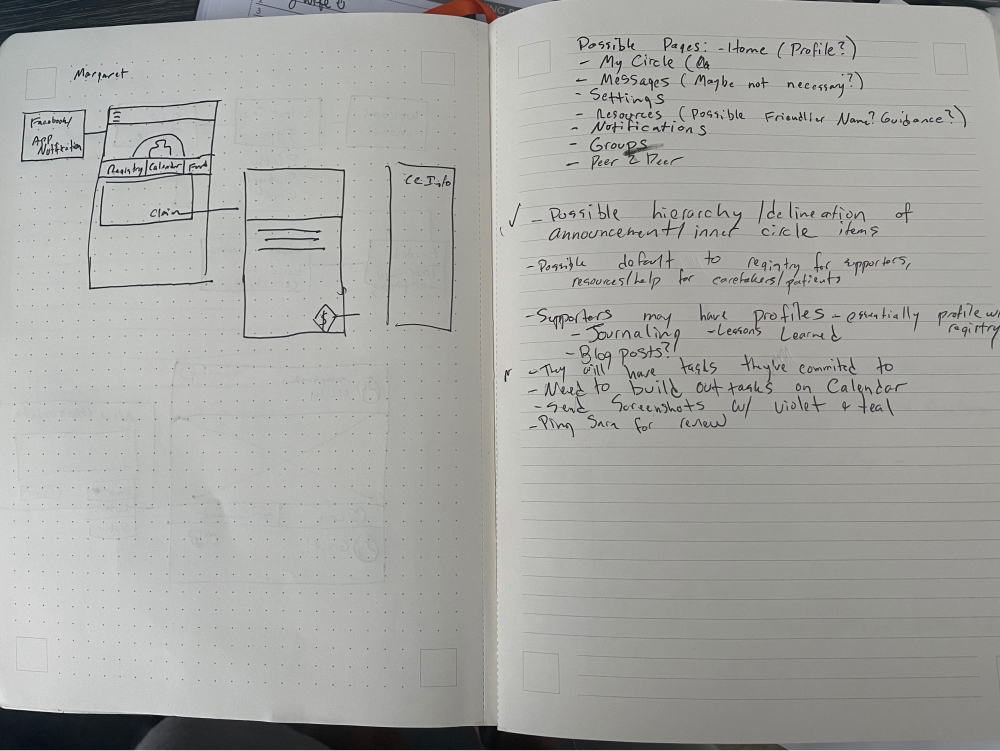 Margaret
Facebook/
App
Notification
Registry Calendar Feed
Claim
$
CC Info
Possible Pages: - Home (Profile?)
- My Circle (
- Messages (Maybe not necessary?)
- Settings
- Resources (Possible Friendlier Name? Guidance?)
- Notifications
- Groups
- Peer 2 Peer
✓ - Possible hierarchy/delineation of
announcement/inner circle items
- Possible default to registry for supporters,
resources/help for caretakers/patients
- Supporters may have profiles - essentially profile w/
registry
- Journaling - Lessons Learned
- Blog posts?
- They will have tasks they've commited to
- Need to build out tasks on Calendar
- Send Screenshots w/ violet & teal
- Ping Sara for review